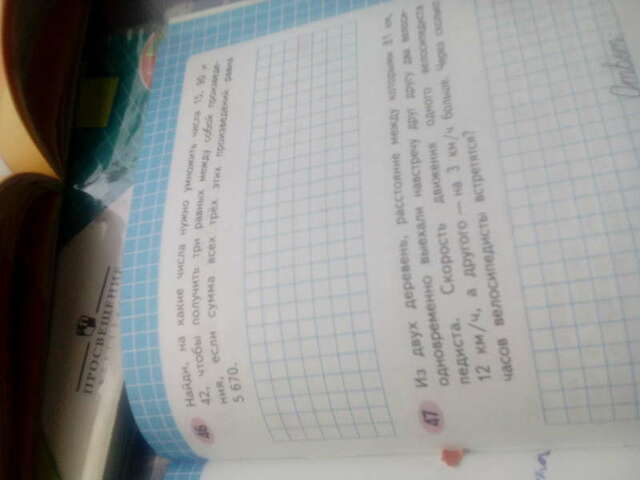 46 Найди, на какие числа нужно умножить числа 15, 90 и
42, чтобы получить три равных между собой произведе-
ния, если сумма всех трёх этих произведений равна
5 670.
47 Из двух деревень, расстояние между которыми 81 км,
одновременно выехали навстречу друг другу два велоси-
педиста. Скорость движения одного велосипедиста
12 км/ч, а другого — на 3 км/ч больше. Через сколько
часов велосипедисты встретятся?
Ответ
ПРОСВЕЩЕНИЕ